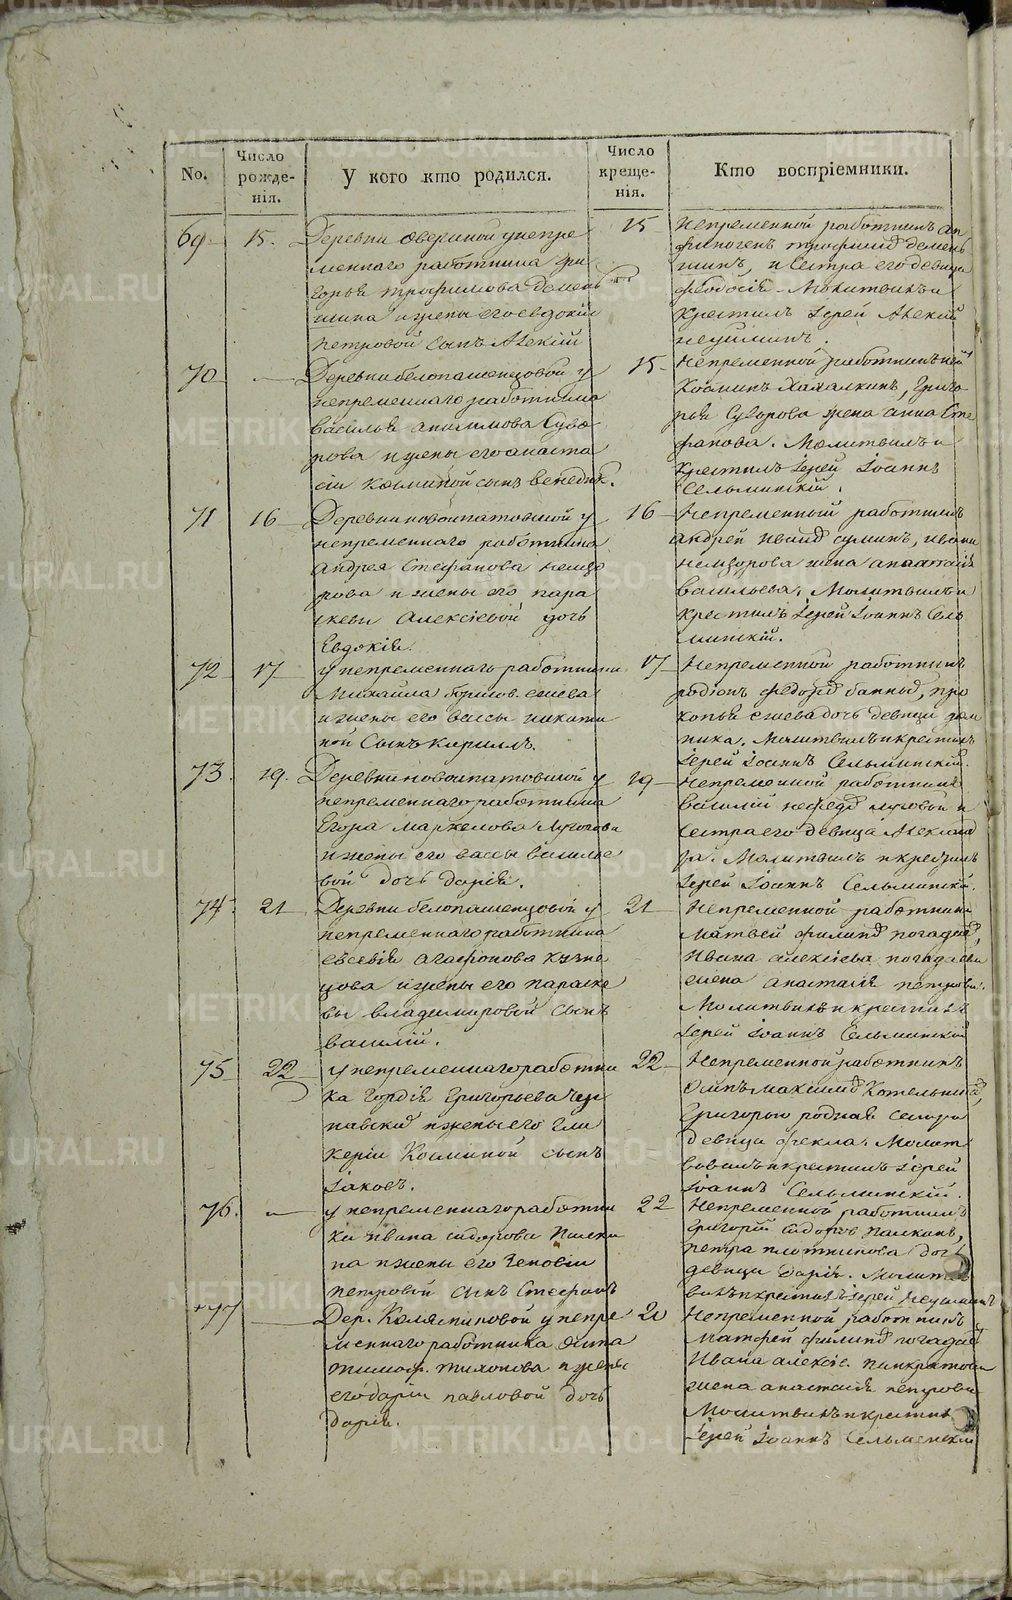 No.
Число рожде-нія.
У кого кто родился.
Число креще-нія.
Кто воспріемники.
69. 15.
Деревни Овериной унепре
меннаго работника гри
горья трофимова Демень
шина ижены его евдокіи
петровой сынъ Алекѣй
15
Непременной работникъ ан
финогенъ трофимов демень
шинъ, и Сестра его девица
феодосія. Молитвилъ и
Крестилъ Іерей Алекѣй
70
Деревни белопашенцовой у
непременнаго работника
василья анисимова Суво
рова и жены его анаста
сіи Косминой сынъ венедик.
15
Непременной работникъ
Косминъ Хахалкинъ, григо
рья Суворова жена анна Сте
фанова. Молитвилъ и
крестилъ Іерей Іоаннъ
Сельминскій.
71 16
Деревни новоипатовской у
непременнаго работника
андрея Стефанова немцо
рова и жены его пара
скевы Алексіевой дочь
Евдокія.
16
Непременный работникъ
андрей иванов сушинъ, ивана
жена анастасія
васильева, Молитвилъ и
крестилъ Іерей Іоаннъ Сель
минскій.
72 17
у непременнаго работника
Михайла
и жены его вассы никити
ной Сынъ Кириллъ.
17
Непременной работникъ
родіонъ федоров банныхъ, про
копья дочь девица дом
ника. Молитвилъ и крестилъ
Іерей Іоаннъ Сельминскій.
73. 19.
Деревни новоипатовской у
непременнаго работника
Егора маркелова Луговова
и жены его вассы василье
вой дочь дарія.
19
Непременной работникъ
василій нефедов луговой и
сестра его девица Александ
ра. Молитвилъ и крестилъ
Іерей Іоаннъ Сельминскій.
74. 21
Деревни белопашенцовой у
непременнаго работника
евсевія агафонова кузне
цова и жены его параске
вы владимировой сынъ
василій.
21
Непременной работникъ
Матвей филипов погадаев,
Ивана алексіева погадаева
жена анастасія петрова.
Молитвилъ и крестилъ
Іерей Іоаннъ Сельминскій
75 22
у непременнаго работни
ка гордія григорьева
и жены его гли
керіи Косминой сынъ
Іаковъ.
22
Непременной работникъ
Осипъ максимов Котельников,
Григорью родная сестра
девица фекла. Молит
вовалъ и крестилъ Іерей
Іоаннъ Сельминскій.
76.
у непременнаго работни
ка ивана сидорова Паски
на и жены его Зеновіи
петровой сынъ Стефанъ
22
Непременной работникъ
григорій сидоров паскинъ,
петра плотникова дочь
девица дарія. Молит
вилъ и крестилъ Іерей
77
Дер. Коляс­никовой у непре
меннаго работника
тимоф. тихонова и жены
его даріи павловой дочь
дарія.
20
Непременной работникъ
Матфей филипов погадаев
Ивана алексіе. панкратова
жена анастасія петрова
Молитвилъ и крестилъ
Іерей Іоаннъ Сельменскій